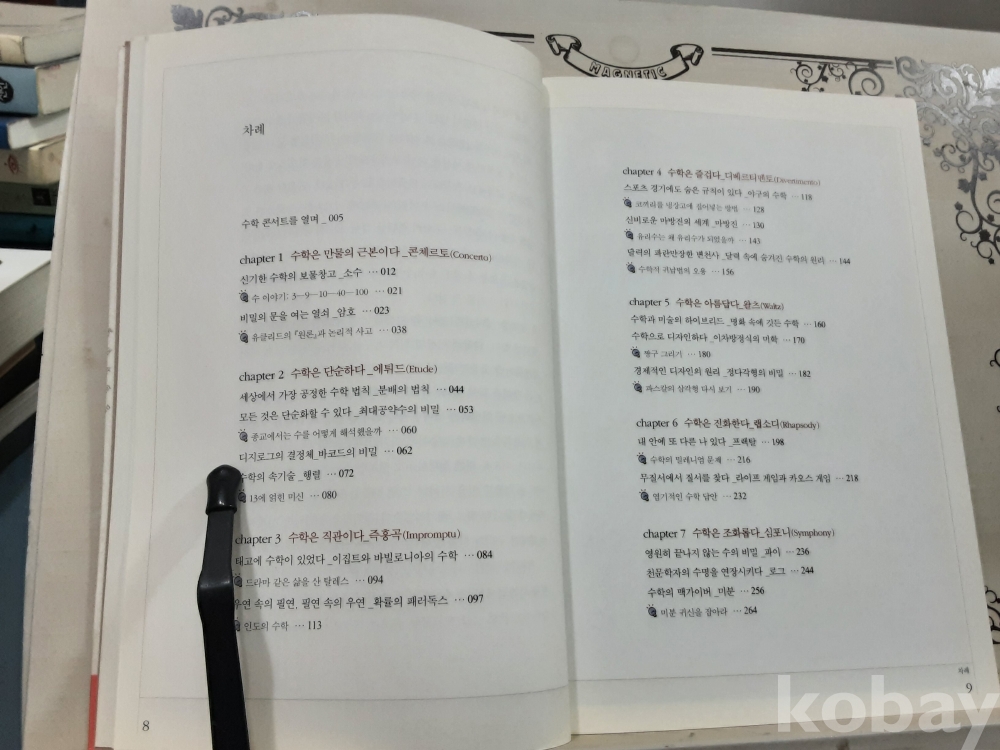 MAGNETIC
차례
수학 콘서트를 열며 _005
chapter 1 수학은 만물의 근본이다_콘체르토(Concerto)
신기한 수학의 보물창고 _소수 … 012
수 이야기: 3—9—10—40—100 … 021
비밀의 문을 여는 열쇠 _암호 … 023
유클리드의 『원론』과 논리적 사고 … 038
chapter 2 수학은 단순하다_에튀드(Etude)
세상에서 가장 공정한 수학 법칙 _분배의 법칙 … 044
모든 것은 단순화할 수 있다 _최대공약수의 비밀 … 053
종교에서는 수를 어떻게 해석했을까 … 060
디지로그의 결정체_바코드의 비밀 … 062
수학의 속기술 _행렬 … 072
13에 얽힌 미신 … 080
chapter 3 수학은 직관이다_즉흥곡(Impromptu)
태고에 수학이 있었다 _이집트와 바빌로니아의 수학 … 084
드라마 같은 삶을 산 탈레스 … 094
우연 속의 필연, 필연 속의 우연 _확률의 패러독스 … 097
인도의 수학 … 113
8
chapter 4 수학은 즐겁다_디베르티멘토(Divertimento)
스포츠 경기에도 숨은 규칙이 있다 _야구의 수학 … 118
코끼리를 냉장고에 집어넣는 방법 … 128
신비로운 마방진의 세계 _마방진 … 130
유리수는 왜 유리수가 되었을까 … 143
달력의 파란만장한 변천사 _달력 속에 숨겨진 수학의 원리 … 144
수학적 귀납법의 오용 … 156
chapter 5 수학은 아름답다_왈츠(Waltz)
수학과 미술의 하이브리드 _명화 속에 깃든 수학 … 160
수학으로 디자인하다 _이차방정식의 미학 … 170
짱구 그리기 … 180
경제적인 디자인의 원리 _정다각형의 비밀 … 182
파스칼의 삼각형 다시 보기 … 190
chapter 6 수학은 진화한다_랩소디(Rhapsody)
내 안에 또 다른 나 있다 _프랙탈 … 198
수학의 밀레니엄 문제 … 216
무질서에서 질서를 찾다 _라이프 게임과 카오스 게임 … 218
엽기적인 수학 답안 … 232
chapter 7 수학은 조화롭다_심포니(Symphony)
영원히 끝나지 않는 수의 비밀 _파이 … 236
천문학자의 수명을 연장시키다 _로그 … 244
수학의 맥가이버 _미분 … 256
미분 귀신을 잡아라 … 264
차례
9
kobay